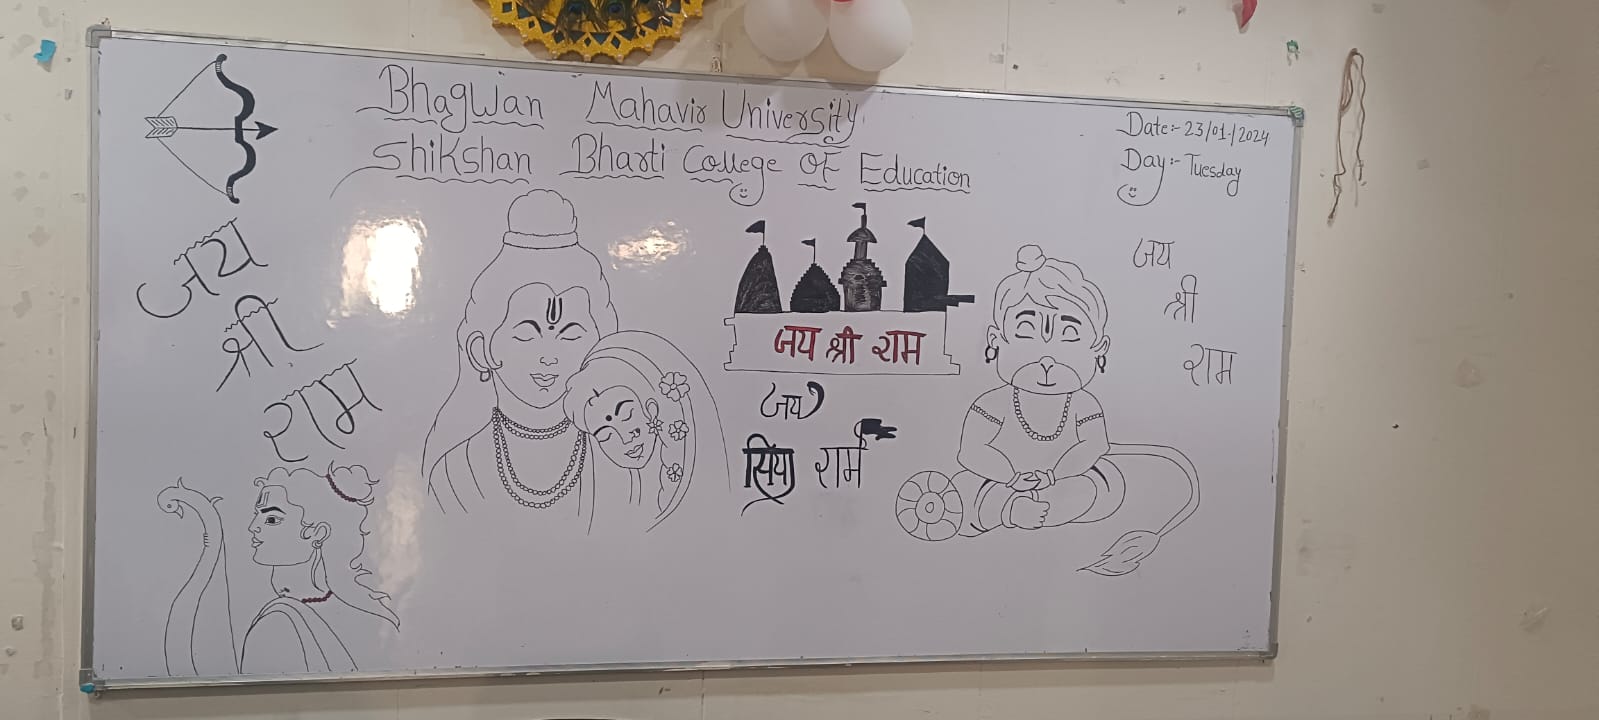 Bhagwan Mahavir University
Shikshan Bharti College Of Education
Date:- 23/01/2024
Day:- Tuesday
जय
श्री
राम
जय श्री राम
जय
सिया राम
जय
श्री
राम